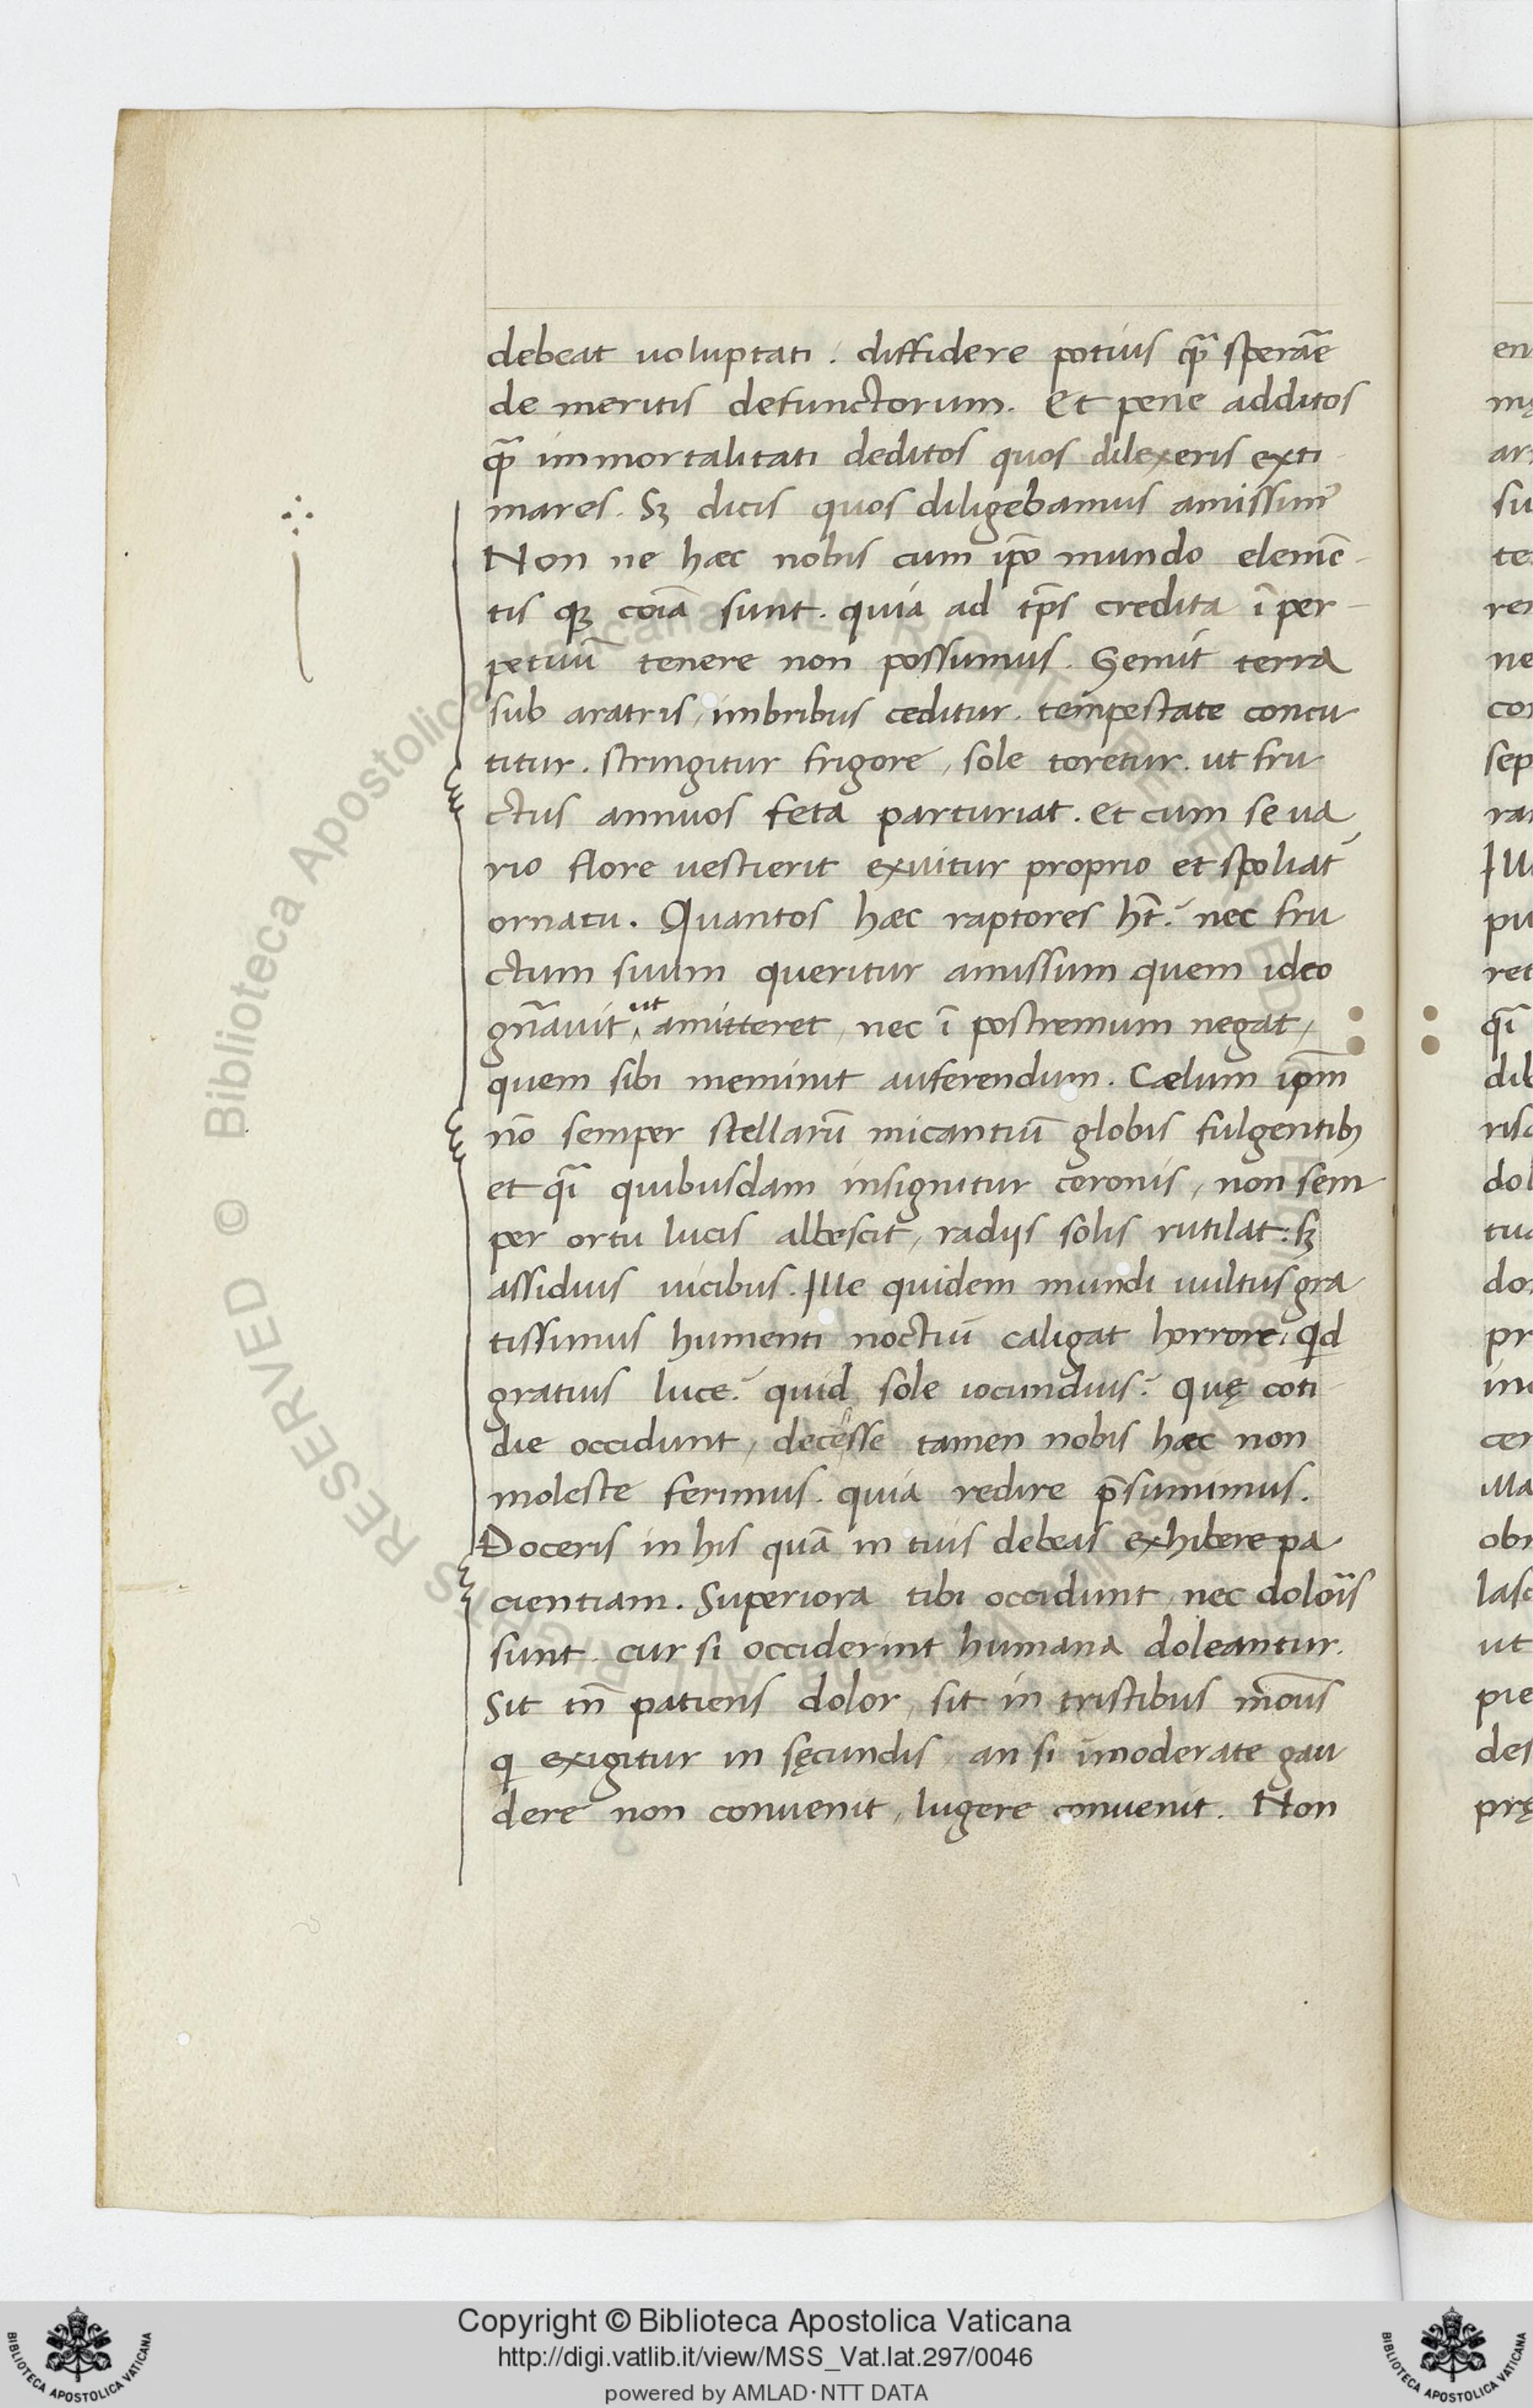 debeat uoluptati. diffidere potius qȝ̃ sperãe
de meritis defunctorum. Et pene additos
qȝ̃ immortalitati deditos quos dilexeris exti
mares. Sȝ dicis quos diligebamus amissim᷒
Non ne hæc nobis cum ip̃o mundo elemẽ-
tis qȝ cõia sunt. quia ad tp̃s credita ĩ per-
petuũ tenere non possumus. Gemit terra
sub aratris, imbribus ceditur. tempestate concu
titur. stringitur frigore, sole toretur. ut fru
ctus annuos feta parturiat. et cum se ua
rio flore uestierit exuitur proprio et spoliat᷒
ornatu. Quantos hæc raptores hñt? nec fru
ctum suum queritur amissum quem ideo
gñauit, ut amitteret, nec ĩ postremum negat,
quem sibi meminit auferendum. Cælum ip̃m
nõ semper stellarũ micantiũ globis fulgentibȝ
et q̃i quibusdam insignitur coronis, non sem
per ortu lucis albescit, radijs solis rutilat: sȝ
assiduis uicibus. Ille quidem mundi uultus gra
tissimus humenti noctiũ caligat horrore, qd
gratius luce? quid sole iocundius? quę coti
die occidunt, decesse tamen nobis hæc non
moleste ferimus. quia redire p̃sumimus.
Doceris in his quã in tuis debeas exhibere pa
cientiam. Superiora tibi occidunt, nec doloĩs
sunt. cur si occiderint humana doleantur.
Sit tñ patiens dolor, sit in tristibus mõus
q exigitur in sęcundis, an si imoderate gau
dere non conuenit, lugere conuenit. Non
en
te
ne
sep
ret
dil
dol
tua
pr
obr
lasc
ut
pie
des
prę
Biblioteca Apostolica Vaticana ALL RIGHTS RESERVED ©
Copyright © Biblioteca Apostolica Vaticana
http://digi.vatlib.it/view/MSS_Vat.lat.297/0046
powered by AMLAD·NTT DATA
BIBLIOTECA APOSTOLICA VATICANA
BIBLIOTECA APOSTOLICA VATICANA